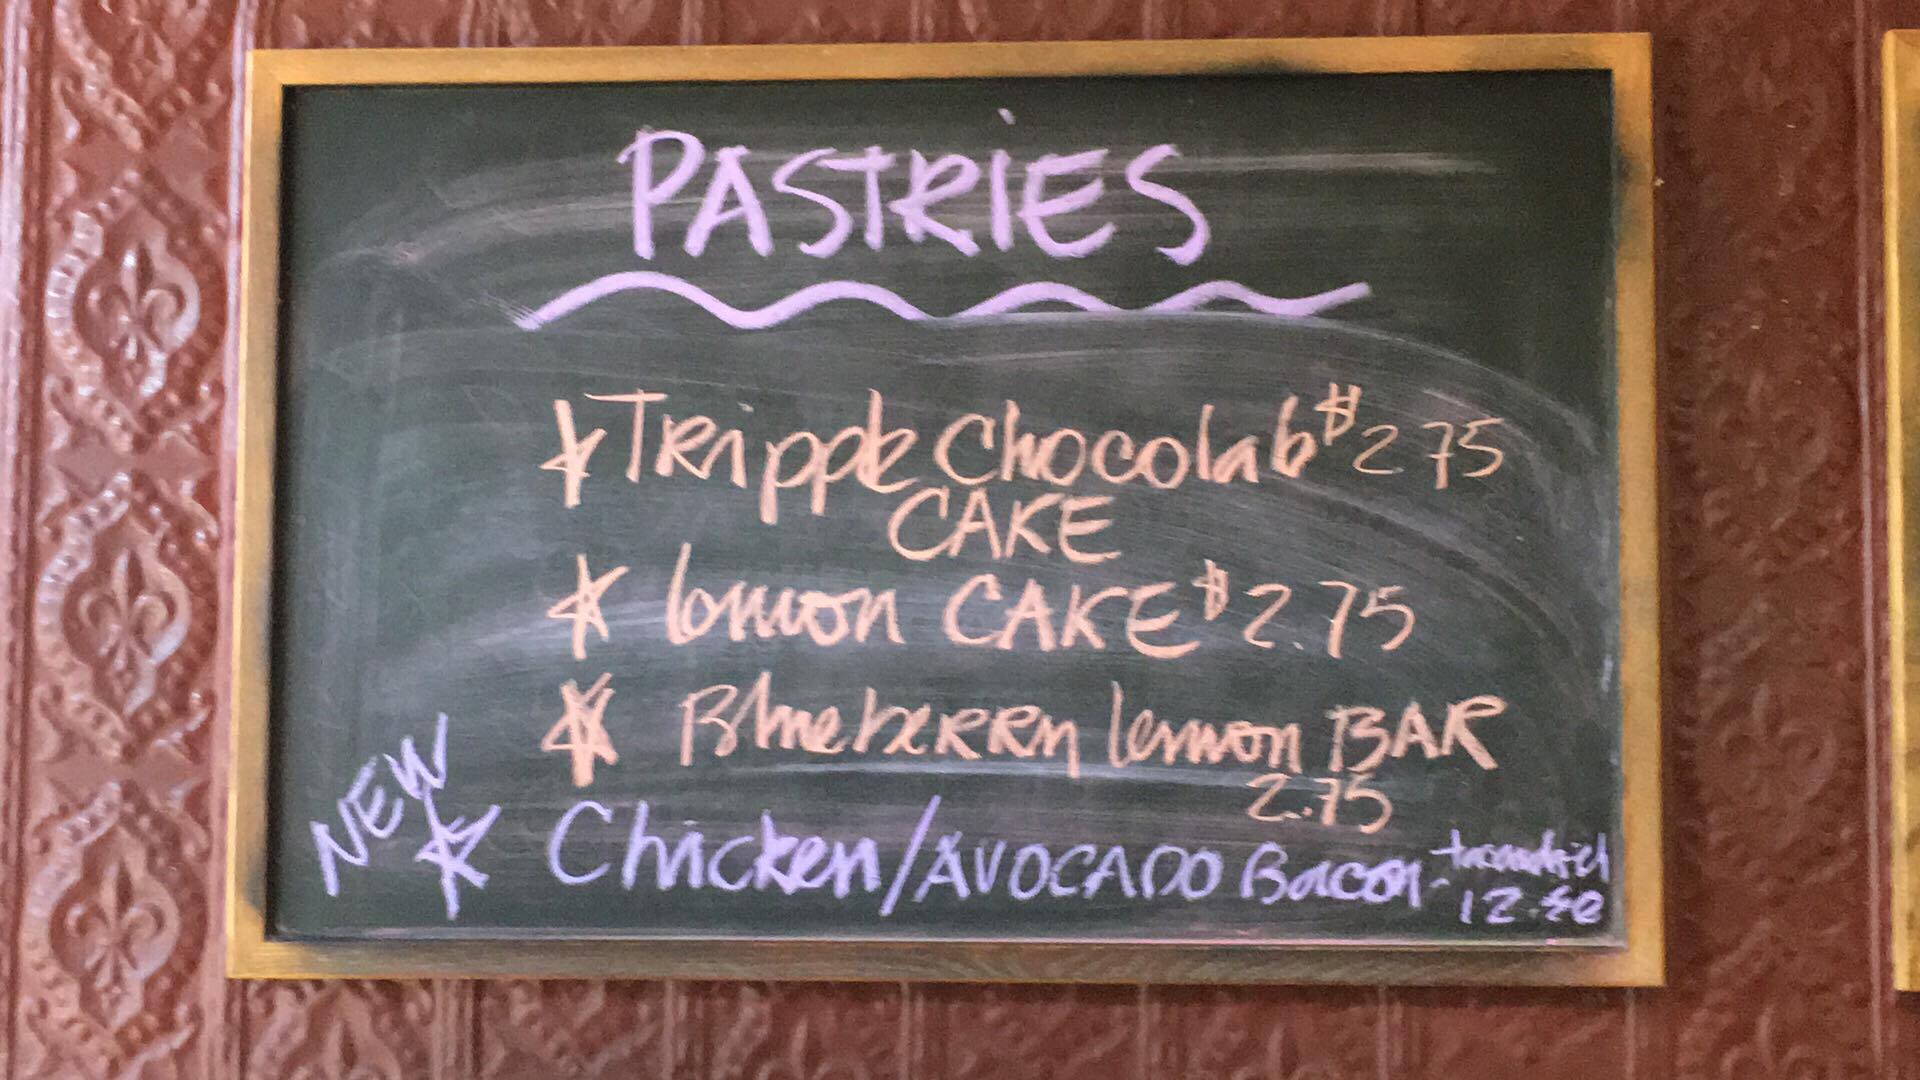 PASTRIES
* Tripple Chocolate $2.75
CAKE
* lemon CAKE $2.75
* Blueberry lemon BAR
2.75
NEW
* Chicken/AVOCADO Bacon-